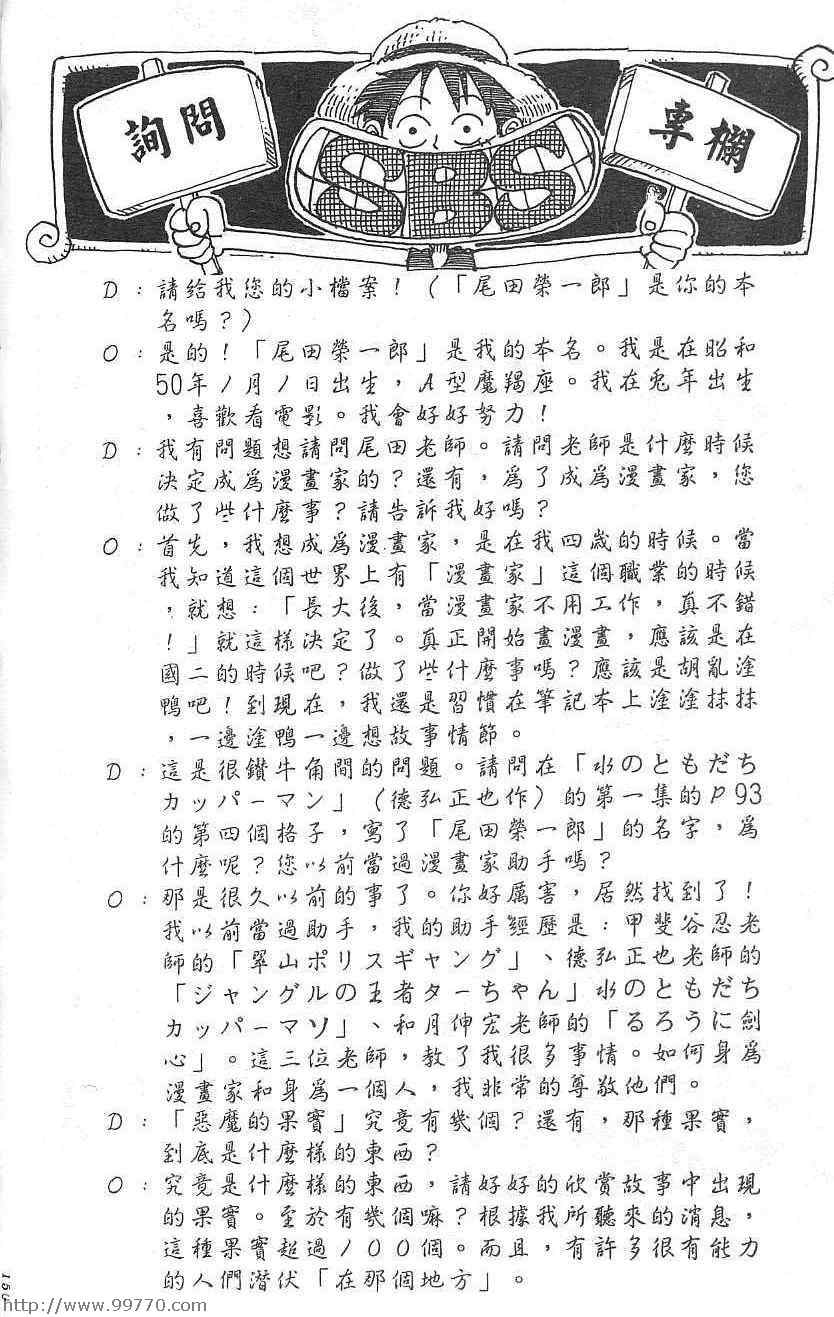 詢問
SBS
專欄
D：請給我您的小檔案！（「尾田榮一郎」是你的本
名嗎？）
O：是的！「尾田榮一郎」是我的本名。我是在昭和
50年1月1日出生，A型魔羯座。我在兔年出生
，喜歡看電影。我會好好努力！
D：我有問題想請問尾田老師。請問老師是什麼時候
決定成爲漫畫家的？還有，爲了成爲漫畫家，您
做了些什麼事？請告訴我好嗎？
O：首先，我想成爲漫畫家，是在我四歲的時候。當
我知道這個世界上有「漫畫家」這個職業的時候
，就想：「長大後，當漫畫家不用工作，真不錯
！」就這樣決定了。真正開始畫漫畫，應該是在
國二的時候吧？做了些什麼事嗎？應該是胡亂塗
鴨吧！到現在，我還是習慣在筆記本上塗塗抹抹
，一邊塗鴨一邊想故事情節。
D：這是很鑽牛角間的問題。請問在「水のともだち
カッパーマン」（德弘正也作）的第一集的P93
的第四個格子，寫了「尾田榮一郎」的名字，爲
什麼呢？您以前當過漫畫家助手嗎？
O：那是很久以前的事了。你好厲害，居然找到了！
我以前當過助手，我的助手經歷是：甲斐谷忍老
師的「翠山ポリスギャング」、德弘正也老師的
「ジャングルの王者ターちゃん」水のともだち
カッパーマソ」、和月伸宏老師的「るろうに劍
心」。這三位老師，教了我很多事情。如何身爲
漫畫家和身爲一個人，我非常的尊敬他們。
D：「惡魔的果實」究竟有幾個？還有，那種果實，
到底是什麼樣的東西？
O：究竟是什麼樣的東西，請好好的欣賞故事中出現
的果實。至於有幾個嘛？根據我所聽來的消息，
這種果實超過100個。而且，有許多很有能力
的人們潛伏「在那個地方」。
http://www.99770.com